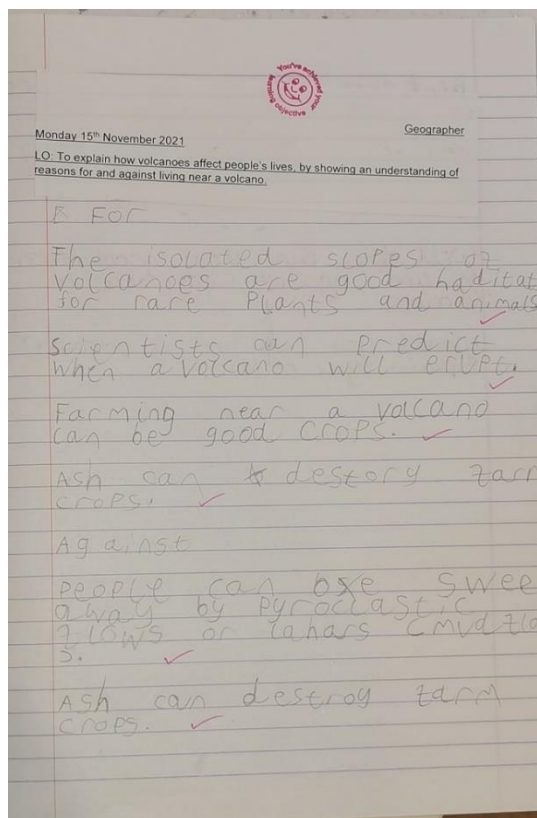 You've achieved your learning objective
Geographer
Monday 15th November 2021
LO: To explain how volcanoes affect people's lives, by showing an understanding of
reasons for and against living near a volcano.
For
The isolated slopes of
volcanoes are good haditat
for rare Plants and animals
Scientists can predict
when a volcano will erupt.
Farming near a volcano
can be good crops.
Ash can destory farm
crops.
Against
people can bxe swee
away by pyroclastic
flows or lahars (mudflo
s.
Ash can destroy farm
crops.